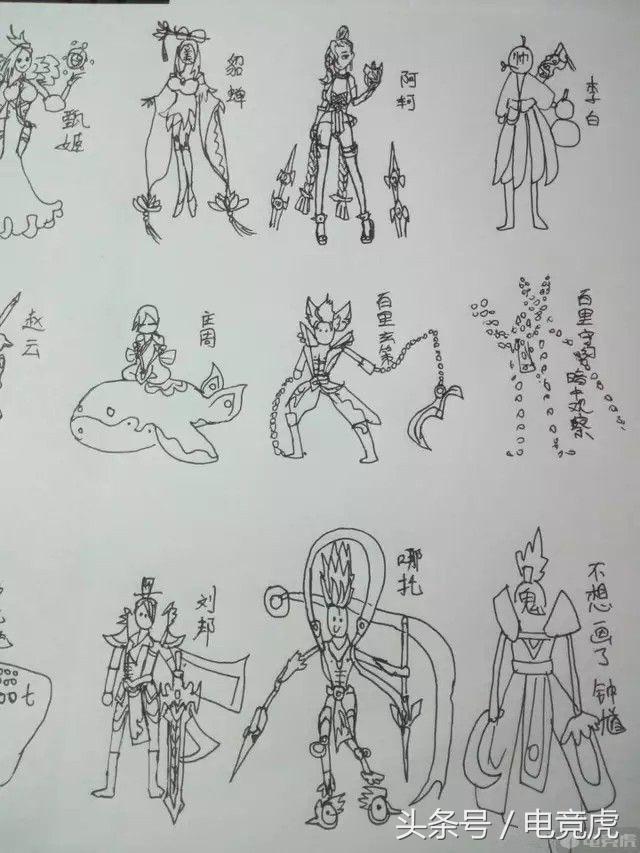 甄姬
貂蝉
阿轲
帅
李白
赵云
庄周
百里玄策
百里守约
暗中观察
七
刘邦
哪托
鬼
不想画了 钟馗
头条号 / 电竞虎
电竞虎